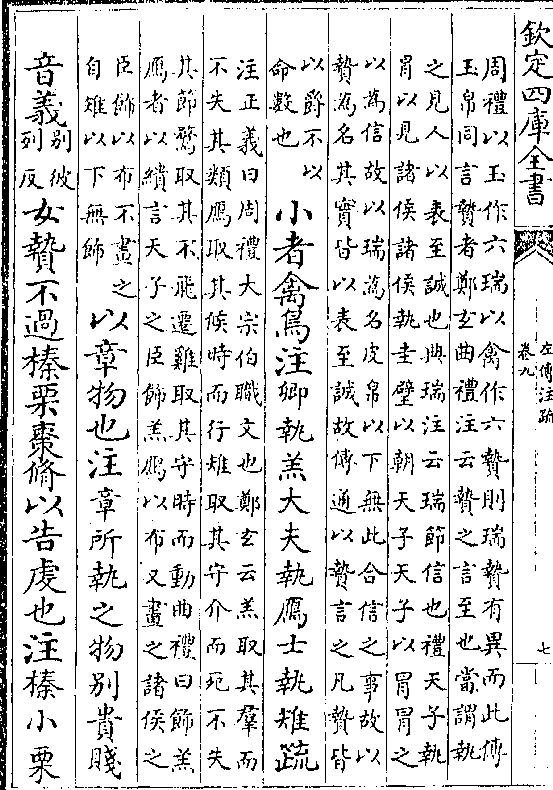 欽定四庫全書
左傳注疏
卷九
七
周禮以玉作六瑞以禽作六贄則瑞贄有異而此傳
玉帛同言贄者鄭玄曲禮注云贄之言至也當謂執
之見人以表至誠也典瑞注云瑞節信也禮天子執
冒以見諸侯諸侯執圭璧以朝天子天子以冒冒之
以為信故以瑞為名皮帛以下無此合信之事故以
贄為名其實皆以表至誠故傳通以贄言之凡贄皆
以爵不以
命數也
小者禽鳥注卿執羔大夫執鴈士執雉疏
注正義曰周禮大宗伯職文也鄭玄云羔取其羣而
不失其類鴈取其候時而行雉取其守介而死不失
其節鶩取其不飛遷雞取其守時而動曲禮曰飾羔
鴈者以繢言天子之臣飾羔鴈以布又畫之諸侯之
臣飾以布不畫之
自雉以下無飾
以章物也注章所執之物别貴賤
音義
别彼
列反
女贄不過榛栗棗脩以告虔也注榛小栗